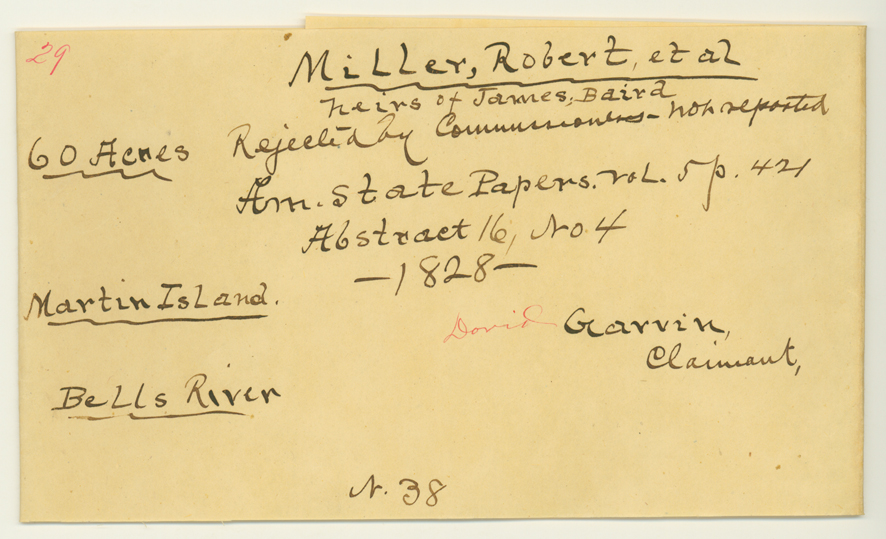 29
Miller, Robert, et al
heirs of James, Baird
60 Acres Rejected by Commissioners - not reported
Am. State Papers. vol. 5 p. 421
Abstract 16, No 4
- 1828 -
Martin Island.
David Garvin,
Claimant,
Bells River
N. 38